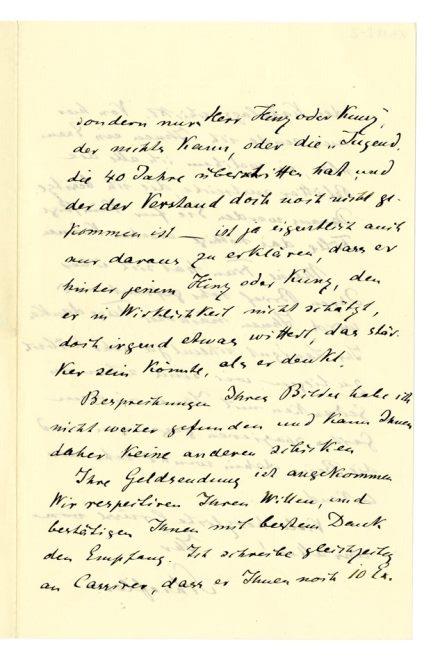 sondern nur Herr Hinz oder Kunz,
der nichts kann, oder die „Jugend,
die 40 Jahre überschritten hat und
der der Verstand doch noch nicht ge-
kommen ist — ist ja eigentlich auch
nur daraus zu erklären, dass er
hinter jenem Hinz oder Kunz, den
er in Wirklichkeit nicht schätzt,
doch irgend etwas wittert, das stär-
ker sein könnte, als er denkt.
Besprechungen Ihres Bildes habe ich
nicht weiter gefunden und kann Ihnen
daher keine anderen schicken
Ihre Geldsendung ist angekommen
Wir respektiren Ihren Willen, und
bestätigen Ihnen mit bestem Dank
den Empfang. Ich schreibe gleichzeitig
an Cassirer, dass er Ihnen noch 10 Ex.